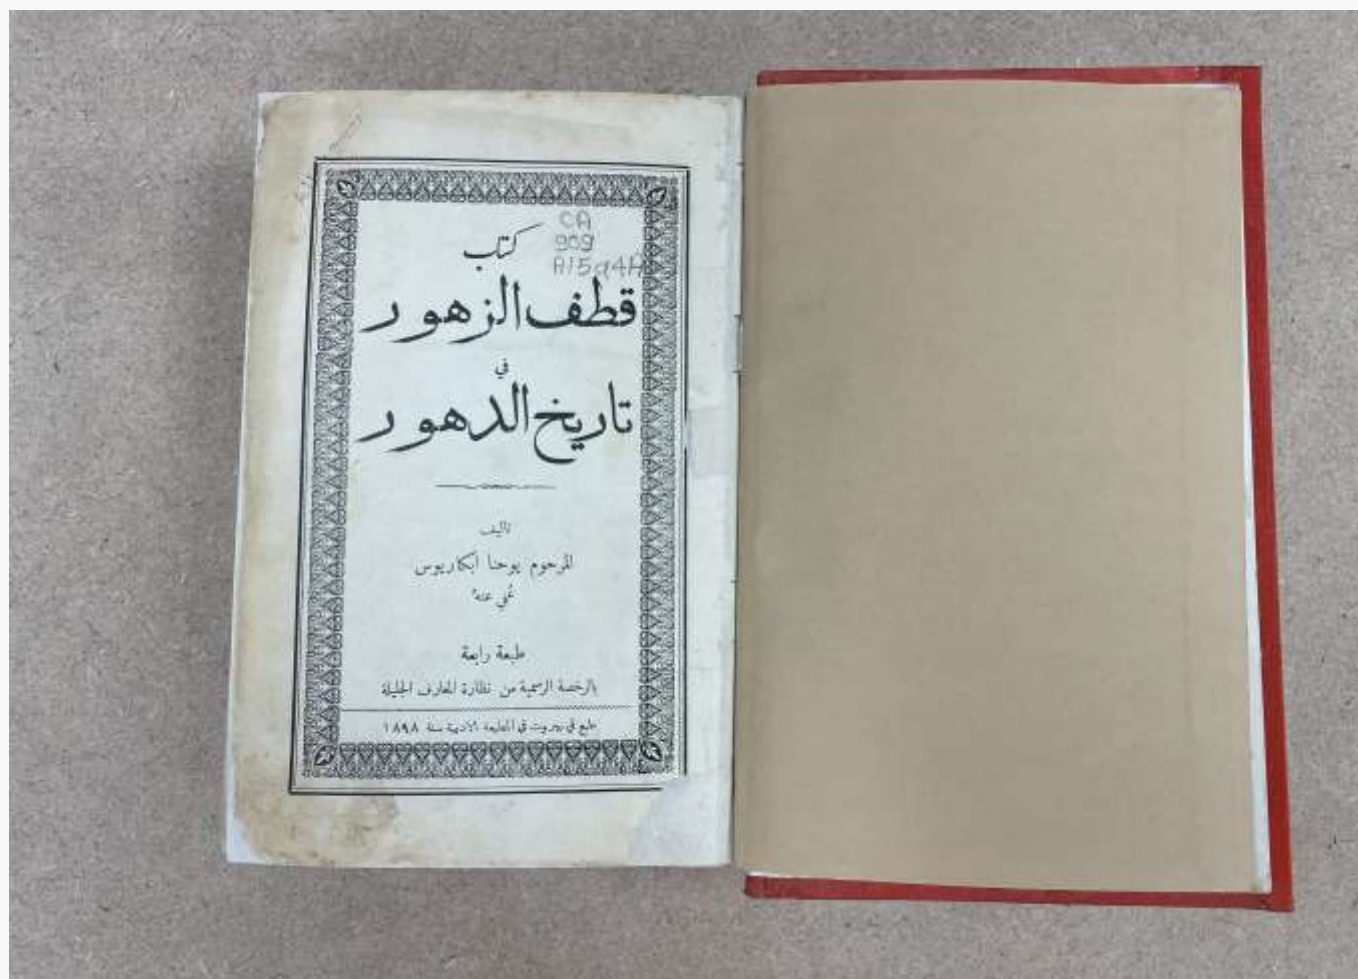 كتاب
CA
909
A15q4A
قطف الزهور
في
تاريخ الدهور
تاليف
المرحوم يوحنا ابكاريوس
عُفي عنهُ
طبعة رابعة
بالرخصة الرسمية من نظارة المعارف الجليلة
طبع في بيروت في المطبعة الادبية سنة ١٨٩٨